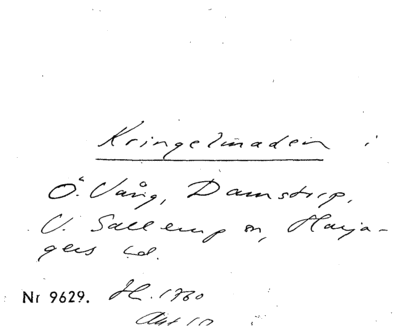 Kringelmaden i
Ö. Vång, Damstorp,
V. Sallerup sn, Harja-
gers hd.
Nr 9629. Hh. 1760
Akt 10